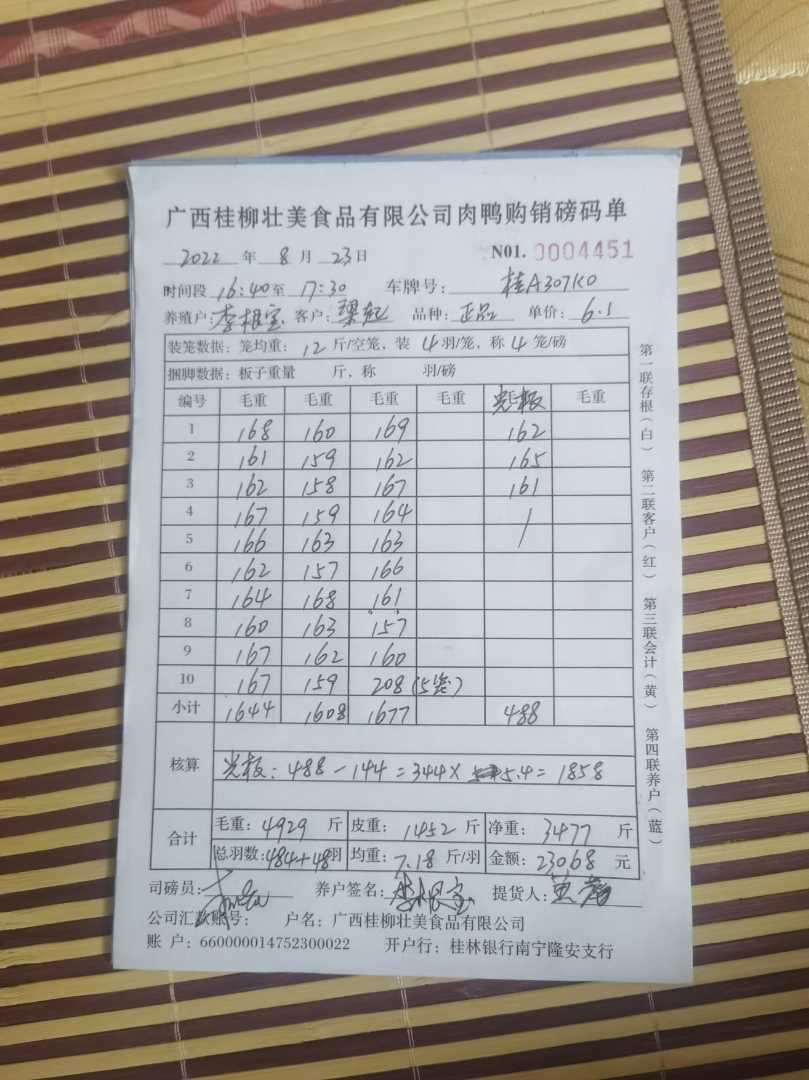 广西桂柳壮美食品有限公司肉鸭购销磅码单
2022 年 8 月 23 日 N01. 0004451
时间段 16:40 至 17:30 车牌号: 桂A307K0
养殖户: 李根宝 客户: 品种: 正品 单价: 6.1
装笼数据: 笼均重: 12 斤/空笼, 装 4 羽/笼, 称 4 笼/磅
捆脚数据: 板子重量 斤, 称 羽/磅
编号 毛重 毛重 毛重 毛重 光板 毛重
1 168 160 169 162
2 161 159 162 165
3 162 158 167 161
4 167 159 164 /
5 166 163 163
6 162 157 166
7 164 168 161
8 160 163 157
9 167 162 160
10 167 159 208 (5笼)
小计 1644 1608 1677 488
核算
光板: 488-144=344× 5.4=1858
合计 毛重: 4929 斤 皮重: 1452 斤 净重: 3477 斤
总羽数: 484+48羽 均重: 7.18 斤/羽 金额: 23068 元
司磅员: 养户签名: 李根宝 提货人:
公司汇款账号: 户名: 广西桂柳壮美食品有限公司
账 户: 660000014752300022 开户行: 桂林银行南宁隆安支行
第一联存根(白) 第二联客户(红) 第三联会计(黄) 第四联养户(蓝)